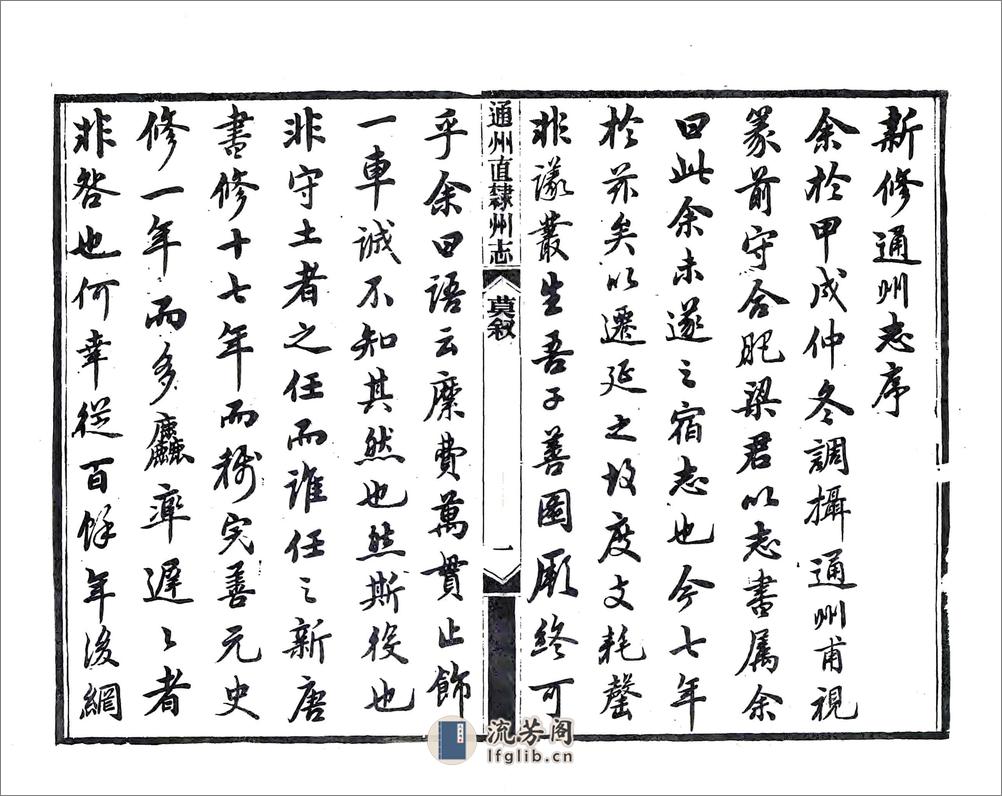 新修通州志序
余於甲戌仲冬調攝通州甫視
篆前守合肥梁君以志書屬余
曰此余未遂之宿志也今七年
於茲矣以遷延之故度支耗罄
非議叢生吾子善圖厥終可
通州直隸州志
莫叙
一
乎余曰語云縻費萬貫止飾
一車誠不知其然也然斯役也
非守土者之任而誰任之新唐
書修十七年而稱完善元史
修一年而多麤率遲遲者
非咎也何幸從百餘年後網
流芳阁
lfglib.cn